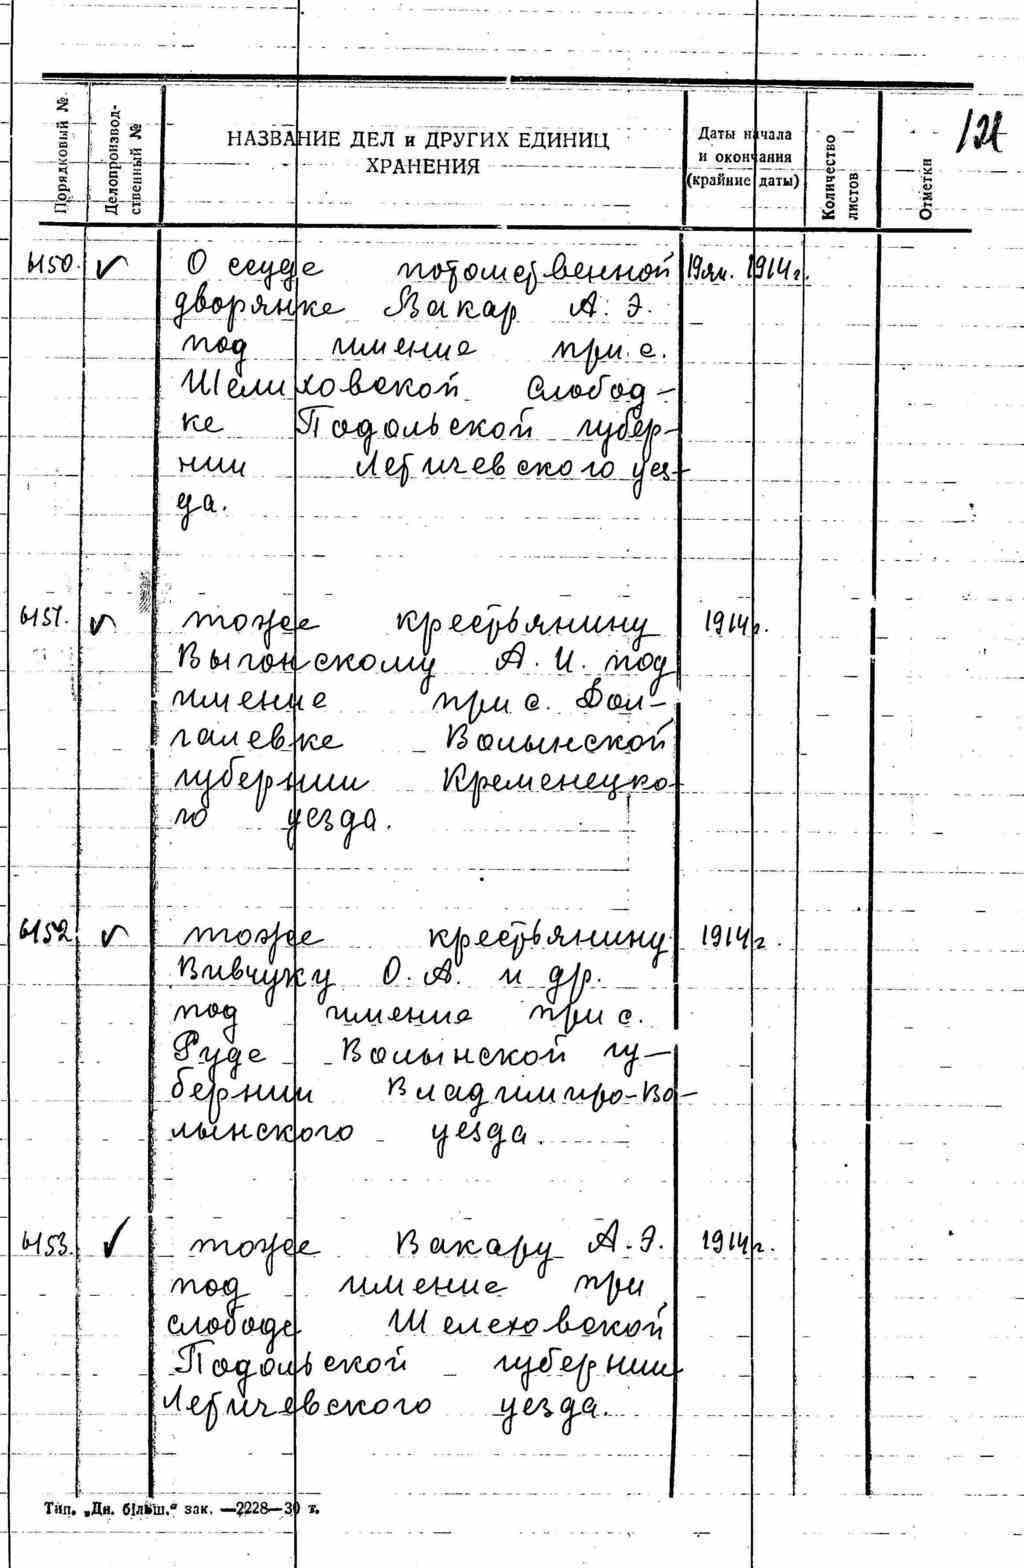 Порядковый №
Делопроизвод-
ственный №
НАЗВАНИЕ ДЕЛ и ДРУГИХ ЕДИНИЦ
ХРАНЕНИЯ
Даты начала
и окончания
(крайние даты)
Количество
листов
Отметки
6150. О ссуде потомственной 19 ян. 1914 г.
дворянке Вакар А. Э.
под имение при с.
Шелиховской Слобод-
ке Подольской губер-
нии Летичевского уез-
да.
6151. тоже крестьянину 1914 г.
Выгонскому А. И. под
имение при с. Дол-
галевке Волынской
губернии Кременецко-
го уезда.
6152 тоже крестьянину 1914 г.
Вивчуку О. А. и др.
под имение при с.
Руде Волынской гу-
бернии Владимиро-Во-
лынского уезда.
6153. тоже Вакару А. Э. 1914 г.
под имение при
слободе Шелеховской
Подольской губернии
Летичевского уезда.
Тип. „Дн. більш." зак. —2228—30 т.